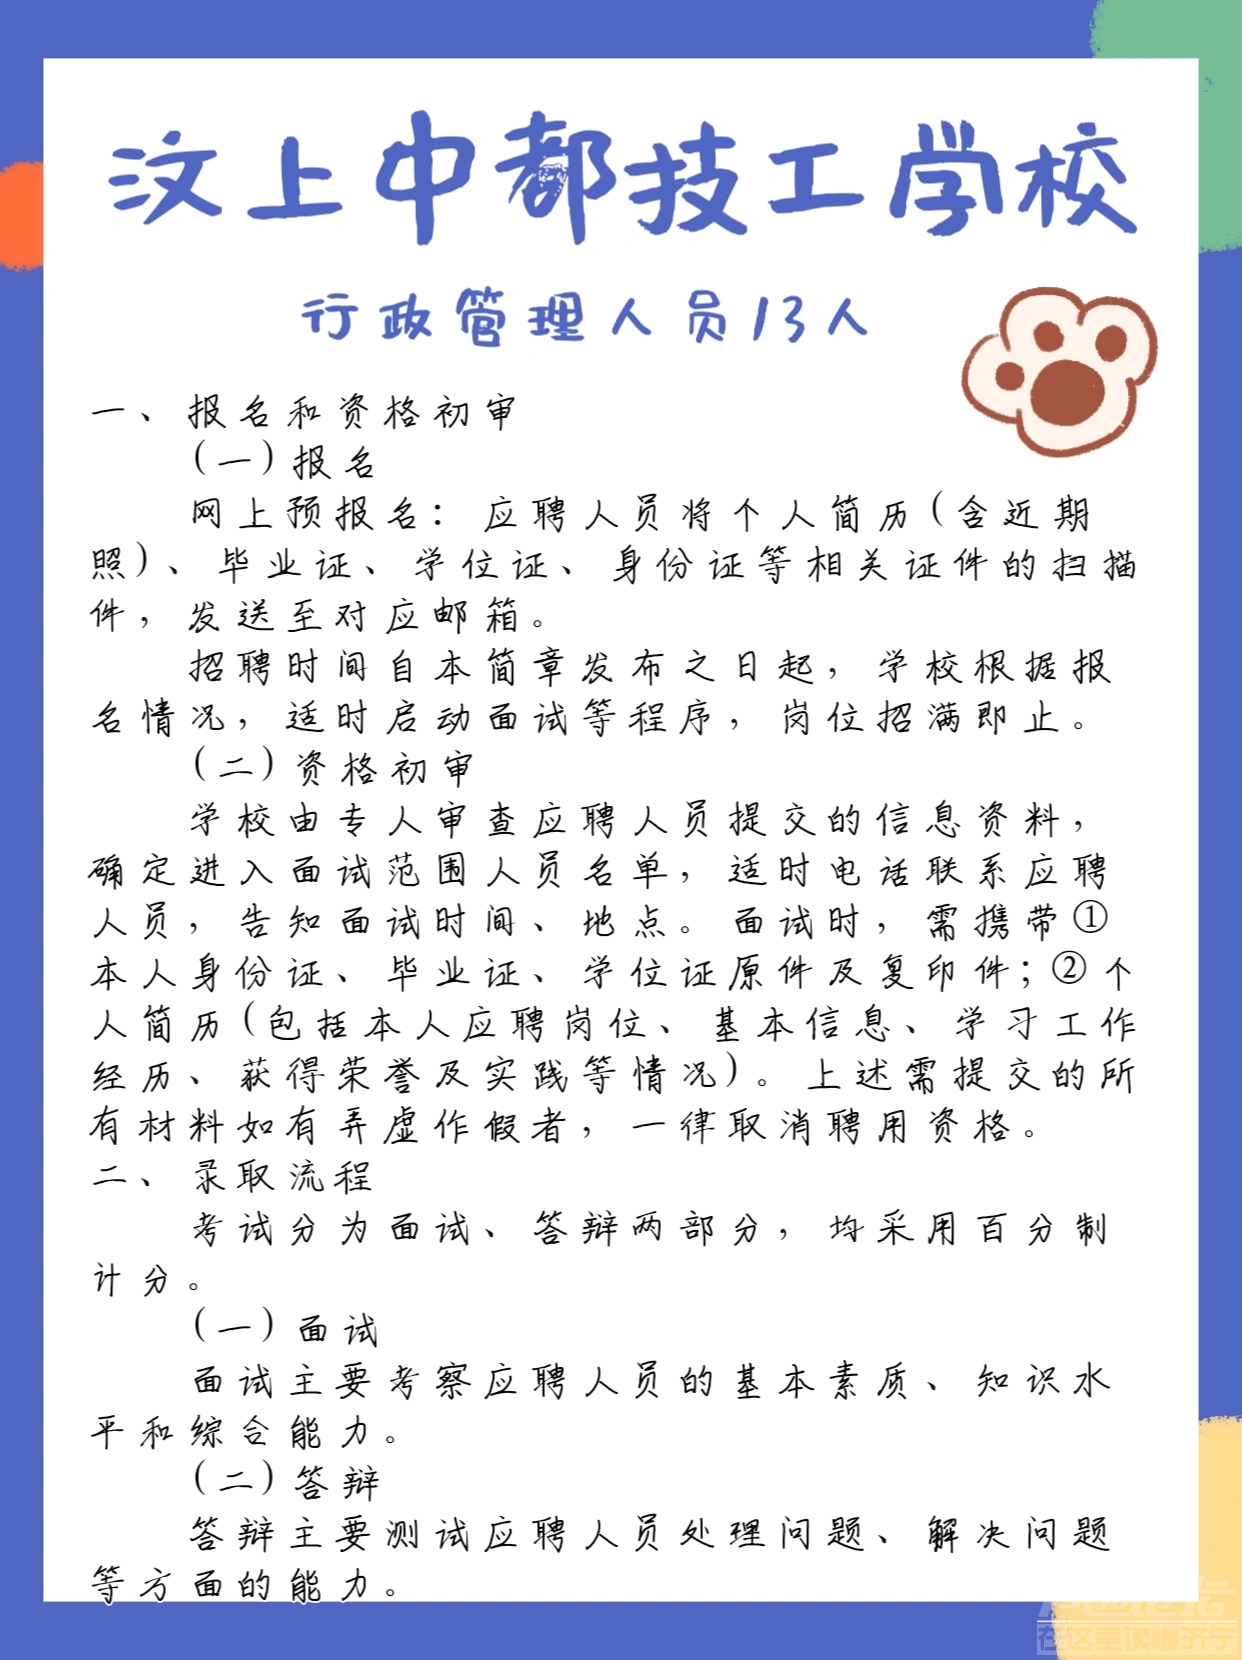 汶上中都技工学校
行政管理人员13人
一、报名和资格初审
(一)报名
网上预报名：应聘人员将个人简历(含近期
照)、毕业证、学位证、身份证等相关证件的扫描
件，发送至对应邮箱。
招聘时间自本简章发布之日起，学校根据报
名情况，适时启动面试等程序，岗位招满即止。
(二)资格初审
学校由专人审查应聘人员提交的信息资料，
确定进入面试范围人员名单，适时电话联系应聘
人员，告知面试时间、地点。面试时，需携带①
本人身份证、毕业证、学位证原件及复印件；②个
人简历(包括本人应聘岗位、基本信息、学习工作
经历、获得荣誉及实践等情况)。上述需提交的所
有材料如有弄虚作假者，一律取消聘用资格。
二、录取流程
考试分为面试、答辩两部分，均采用百分制
计分。
(一)面试
面试主要考察应聘人员的基本素质、知识水
平和综合能力。
(二)答辩
答辩主要测试应聘人员处理问题、解决问题
等方面的能力。
在这里读懂济宁